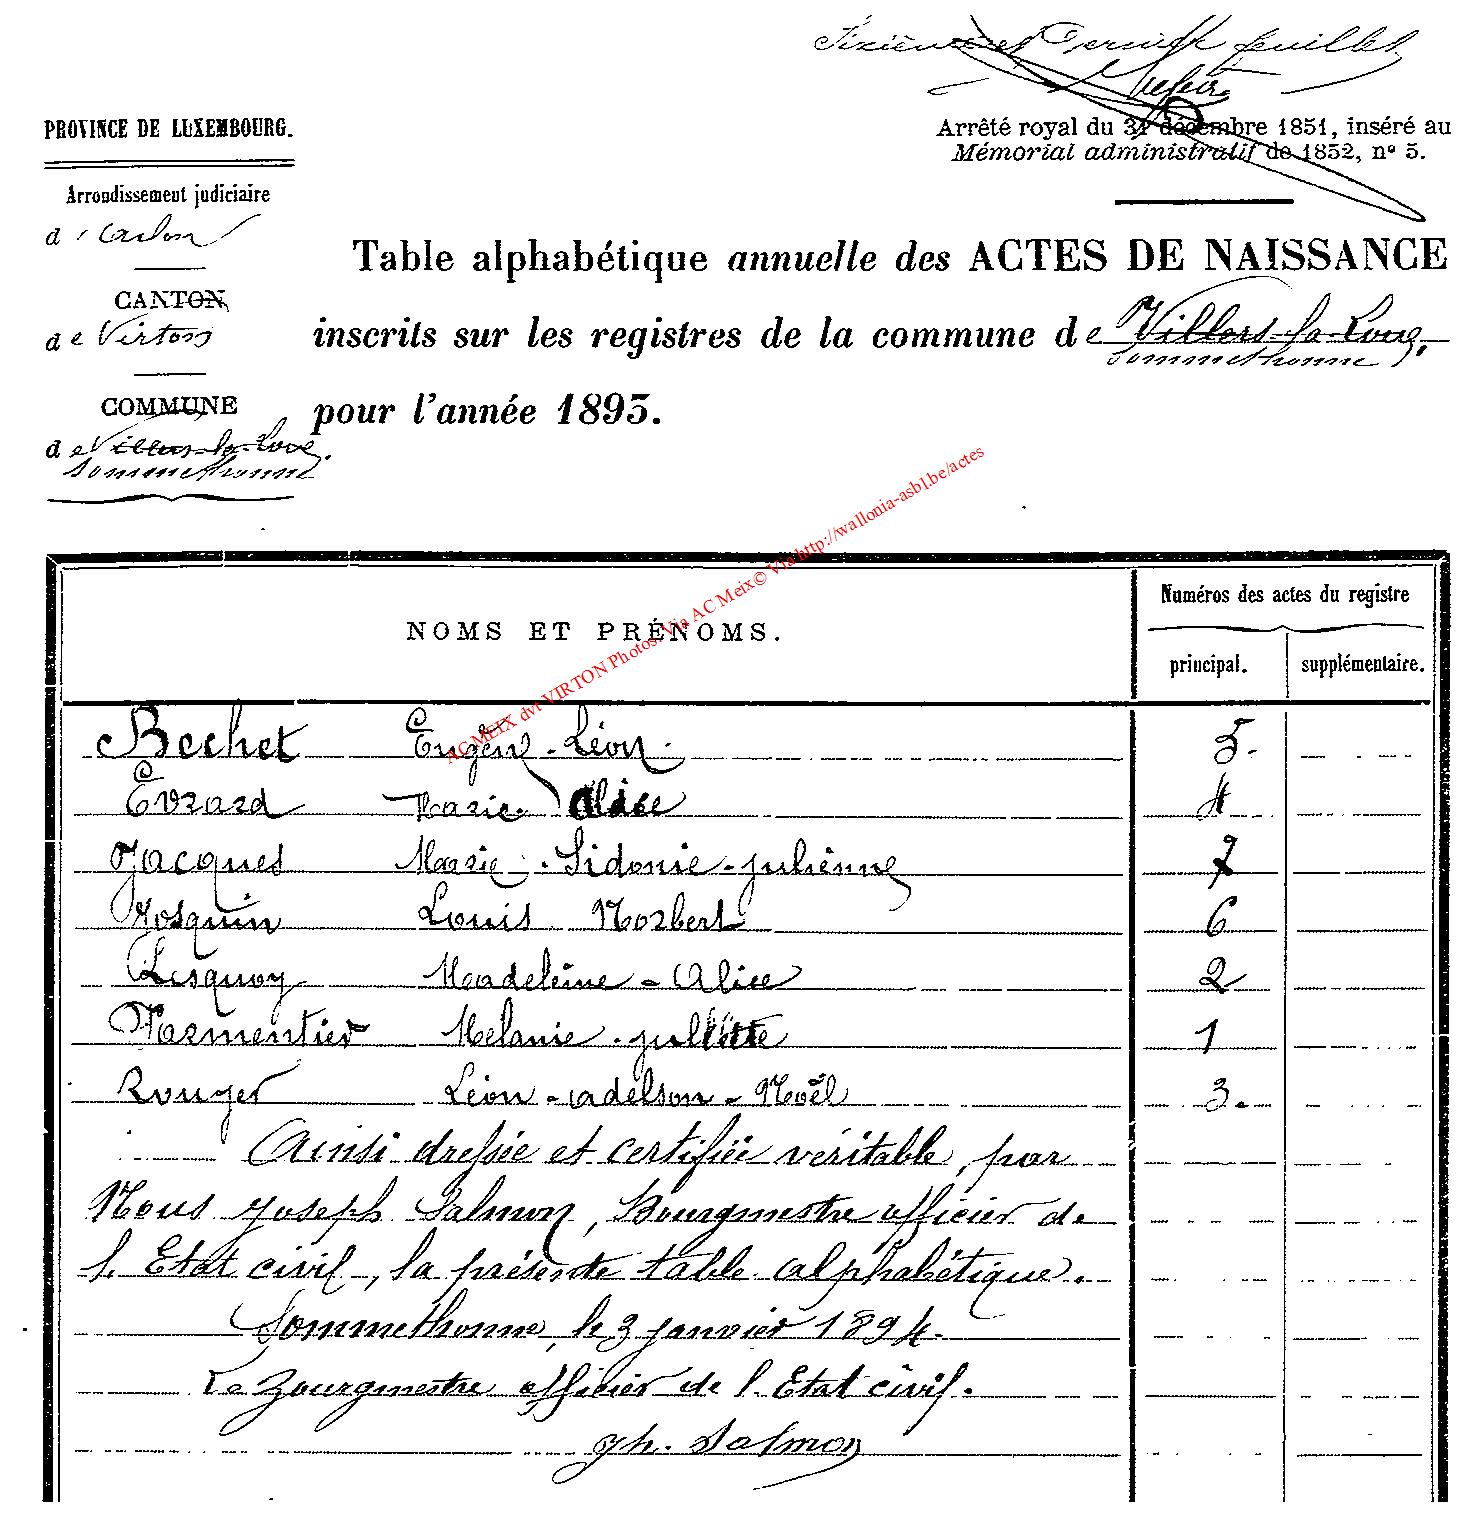 Sixième et Dernier feuillet
PROVINCE DE LUXEMBOURG.
Arrêté royal du 31 décembre 1851, inséré au
Mémorial administratif de 1852, nº 5.
Arrondissement judiciaire
d'Arlon
CANTON
de Virton
COMMUNE
de Villers-la-Loue.
Sommethonne
Table alphabétique annuelle des ACTES DE NAISSANCE
inscrits sur les registres de la commune de Villers-la-Loue.
Sommethonne
pour l'année 1893.
AC MEIX dvt VIRTON Photos. Via AC Meix© Via http://wallonia-asbl.be/actes
NOMS ET PRÉNOMS.
Numéros des actes du registre
principal.
supplémentaire.
Bechet Eugène-Léon. 5.
Evrard Marie Alice 4
Jacques Marie-Sidonie-Julienne 7
Josquin Louis Norbert 6
Lesquoy Madeleine-Alice 2
Parmentier Mélanie-Juliette 1
Rouyer Léon-Adelson-Noël 3.
Ainsi dressée et certifiée véritable, par
Nous Joseph Salmon, Bourgmestre officier de
l'Etat civil, la présente table alphabétique.
Sommethonne, le 3 janvier 1894.
Le Bourgmestre officier de l'Etat civil.
Jh. Salmon